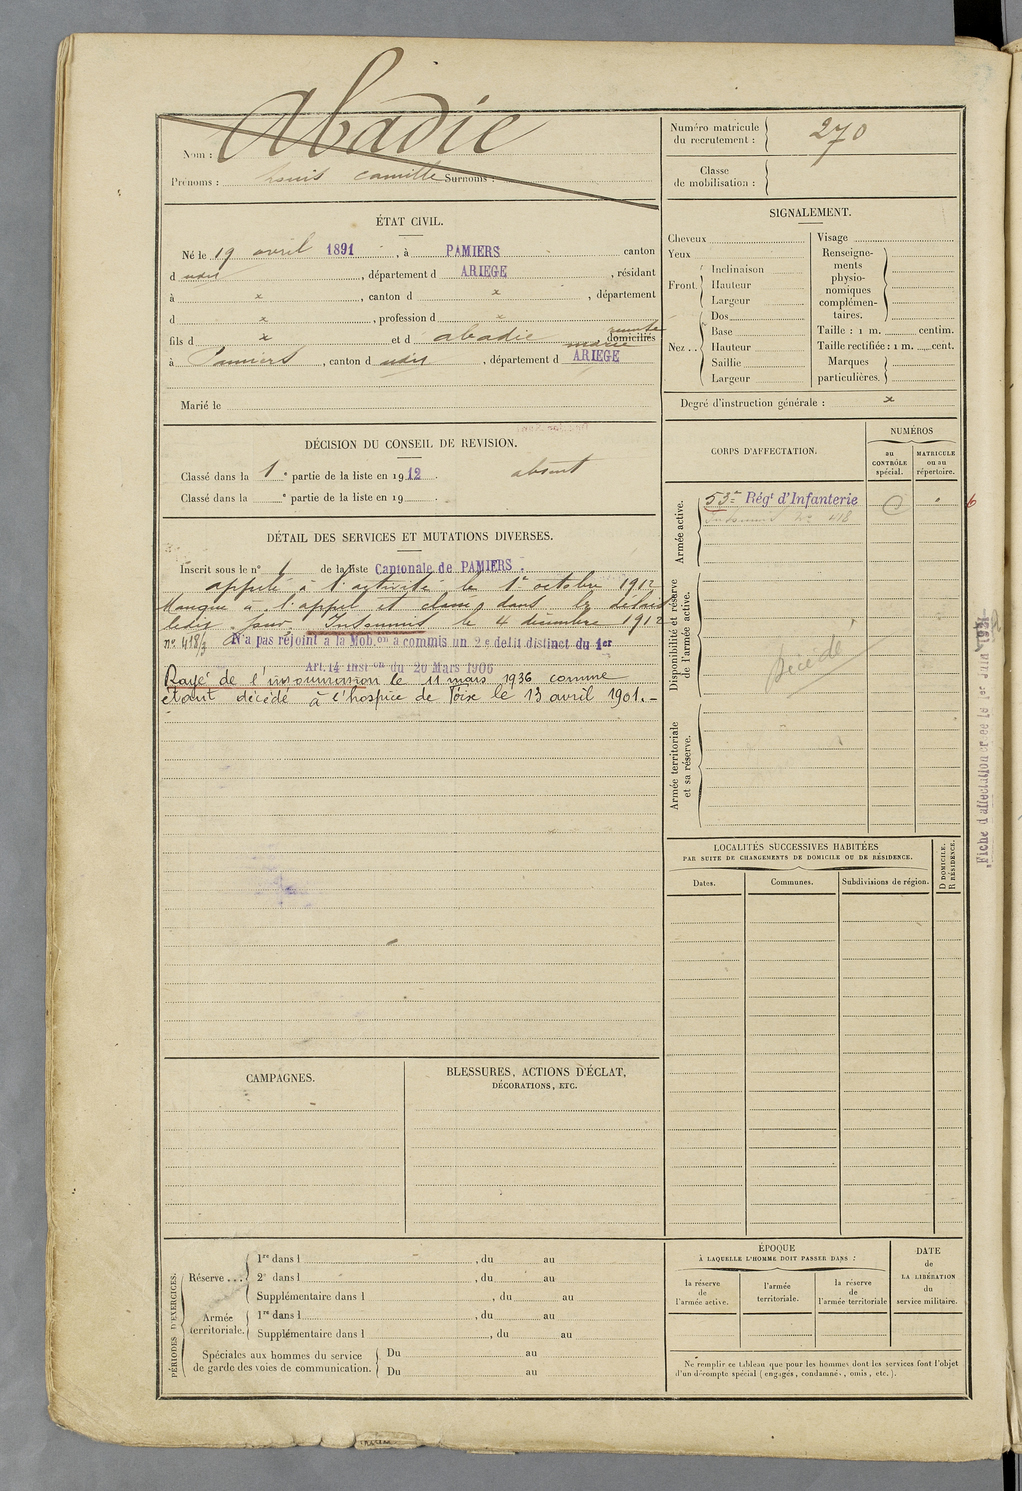 Nom : Abadie
Prénoms : Louis Camille Surnoms :
Numéro matricule du recrutement : 270
Classe de mobilisation :
ÉTAT CIVIL.
Né le 19 avril 1891, à PAMIERS canton
d udit, département d ARIEGE, résidant
à x, canton d x, département
d x, profession d x
fils d x et d abadie marie domiciliés
à Pamiers, canton d udit, département d ARIEGE
Marié le
SIGNALEMENT.
Cheveux
Yeux
Front.
Inclinaison
Hauteur
Largeur
Nez ..
Dos
Base
Hauteur
Saillie
Largeur
Visage
Renseigne-
ments
physio-
nomiques
complémen-
taires.
Taille : 1 m. centim.
Taille rectifiée : 1 m. cent.
Marques
particulières.
Degré d'instruction générale : x
DÉCISION DU CONSEIL DE REVISION.
Classé dans la 1e partie de la liste en 1912. absent
Classé dans la e partie de la liste en 19 .
DÉTAIL DES SERVICES ET MUTATIONS DIVERSES.
Inscrit sous le n° 1 de la liste Cantonale de PAMIERS.
appelé à l'activité le 1er octobre 1912
Manque à l'appel et classé dans les délais
ledit jour. Insoumis le 4 décembre 1912
n° 418/3 N'a pas rejoint a la Mob.on a commis un 2e delit distinct du 1er
Art. 14 Inst on du 20 Mars 1906
Rayé de l'insoumission le 11 mars 1936 comme
étant décédé à l'hospice de Foix le 13 avril 1901.-
CORPS D'AFFECTATION.
NUMÉROS
au
CONTRÔLE
spécial.
MATRICULE
ou au
répertoire.
Armée active.
53e Régt d'Infanterie
Insoumis n° 418
Disponibilité et réserve
de l'armée active.
Décédé
Armée territoriale
et sa réserve.
Fiche d'affectation créée le 1er Juin 1921
LOCALITÉS SUCCESSIVES HABITÉES
PAR SUITE DE CHANGEMENTS DE DOMICILE OU DE RÉSIDENCE.
Dates.
Communes.
Subdivisions de région.
D DOMICILE.
R RÉSIDENCE.
CAMPAGNES.
BLESSURES, ACTIONS D'ÉCLAT,
DÉCORATIONS, ETC.
PÉRIODES D'EXERCICES.
Réserve ...
1re dans l , du au
2e dans l , du au
Supplémentaire dans l , du au
Armée
territoriale.
1re dans l , du au
Supplémentaire dans l , du au
Spéciales aux hommes du service
de garde des voies de communication.
Du au
Du au
ÉPOQUE
À LAQUELLE L'HOMME DOIT PASSER DANS :
la réserve
de
l'armée active.
l'armée
territoriale.
la réserve
de
l'armée territoriale
DATE
de
LA LIBÉRATION
du
service militaire.
Ne remplir ce tableau que pour les hommes dont les services font l'objet
d'un décompte spécial (engagés, condamnés, omis, etc.).